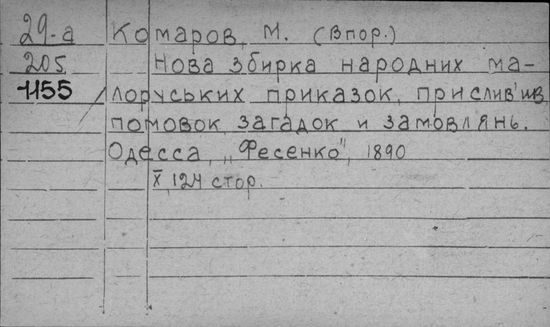 29-а Комаров, М. (Впор.)
205 Нова збирка народних ма-
1155 лоруських приказок, прислив'ив
помовок, загадок и замовлянь.
Одесса, „Фесенко", 1890
X, 124 стор.